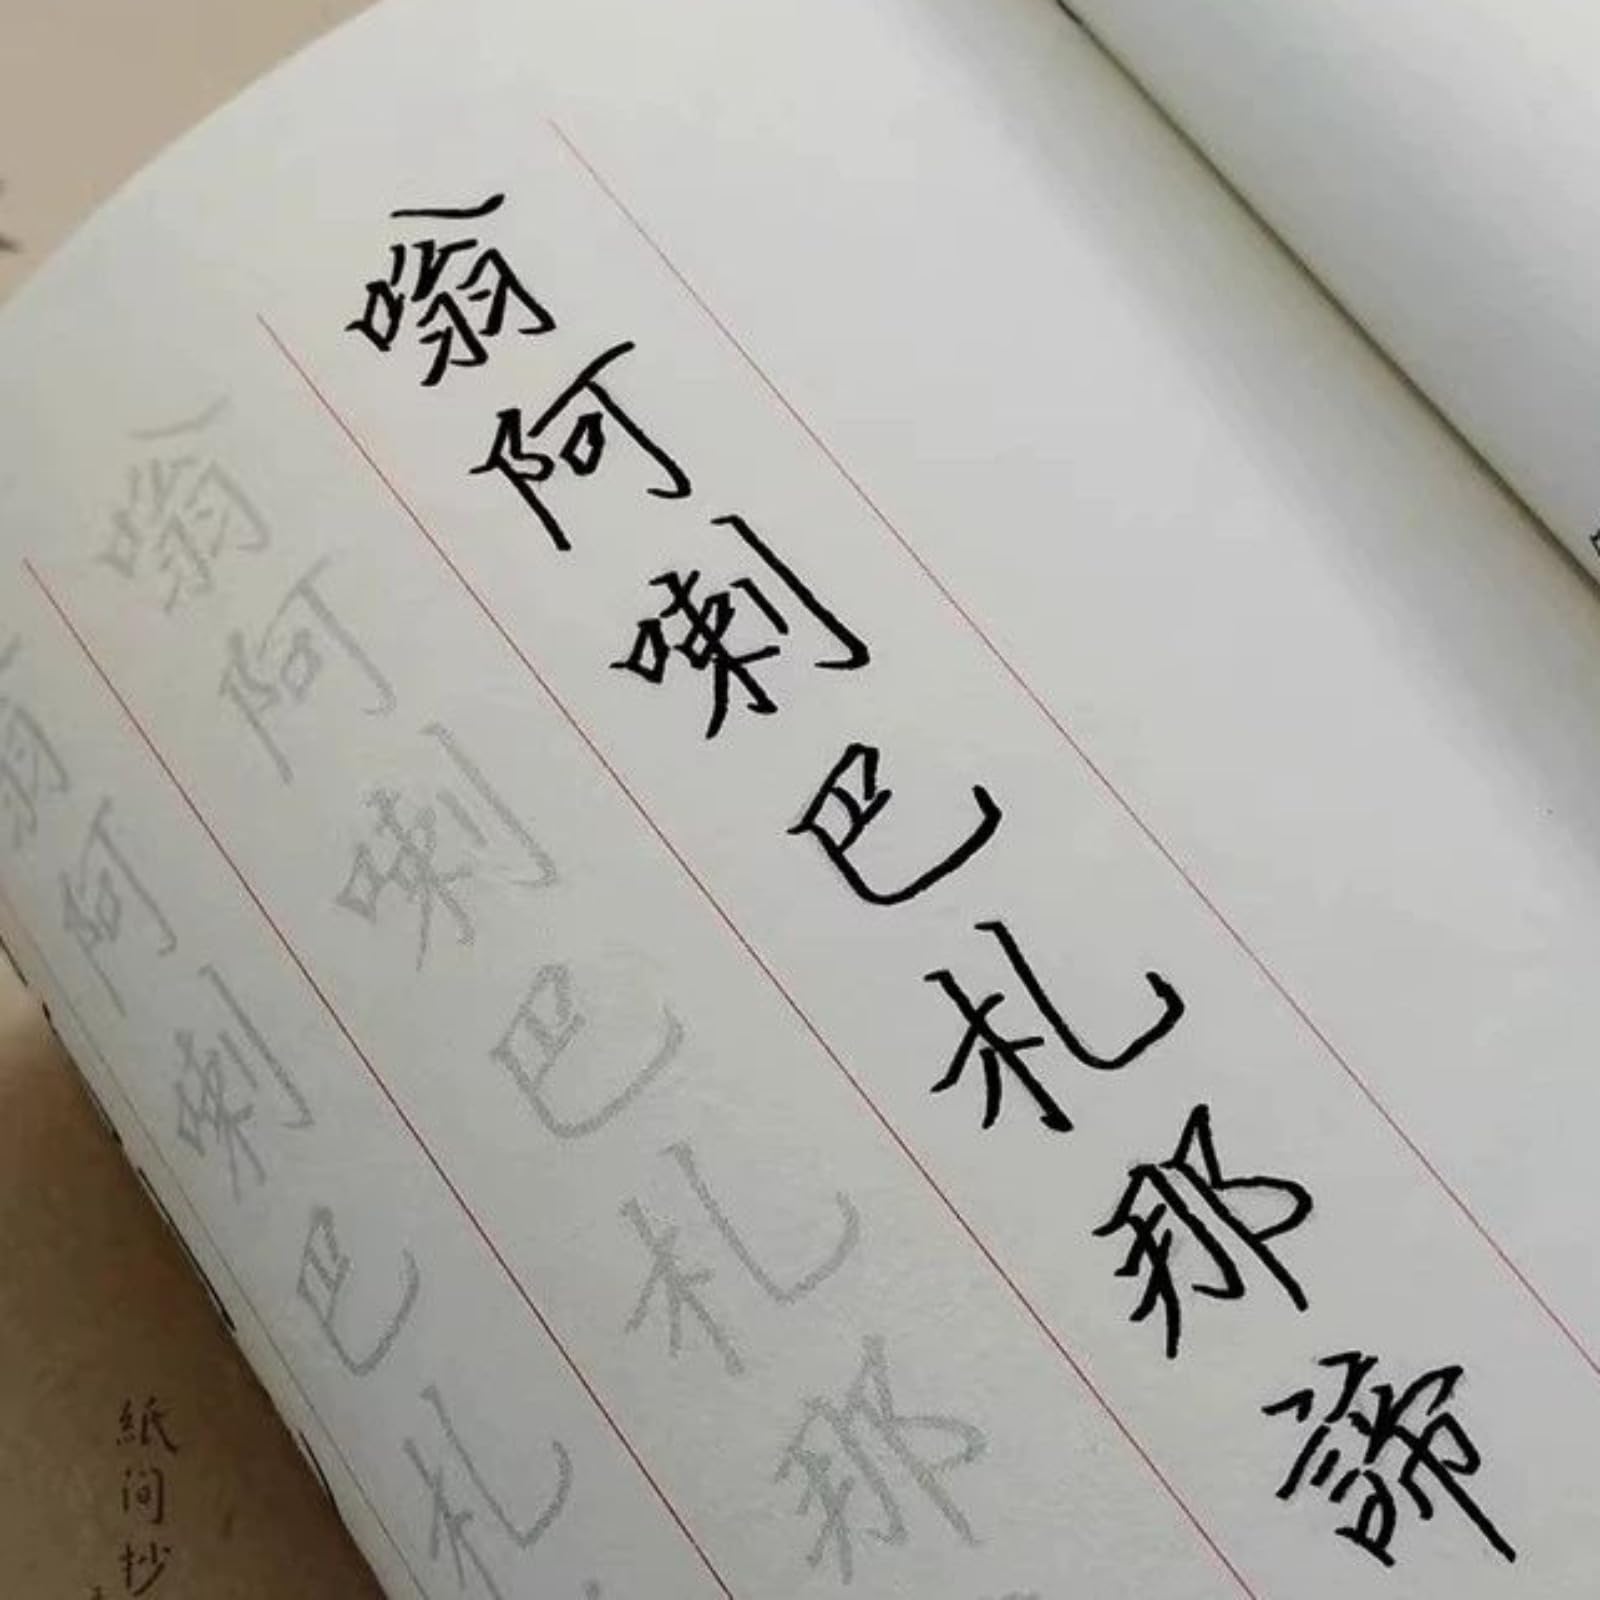 嗡阿喇巴札那諦
嗡阿喇巴札那
嗡阿喇巴札
紙间抄